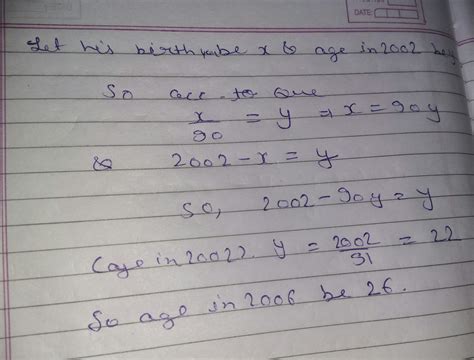 DATE:
Let his birth year be x & age in 2002 be y
So acc. to que
x/90 = y ⇒ x = 90y
& 2002 - x = y
So, 2002 - 90y = y
(age in 2002) y = 2002/91 = 22
So age in 2006 be 26.